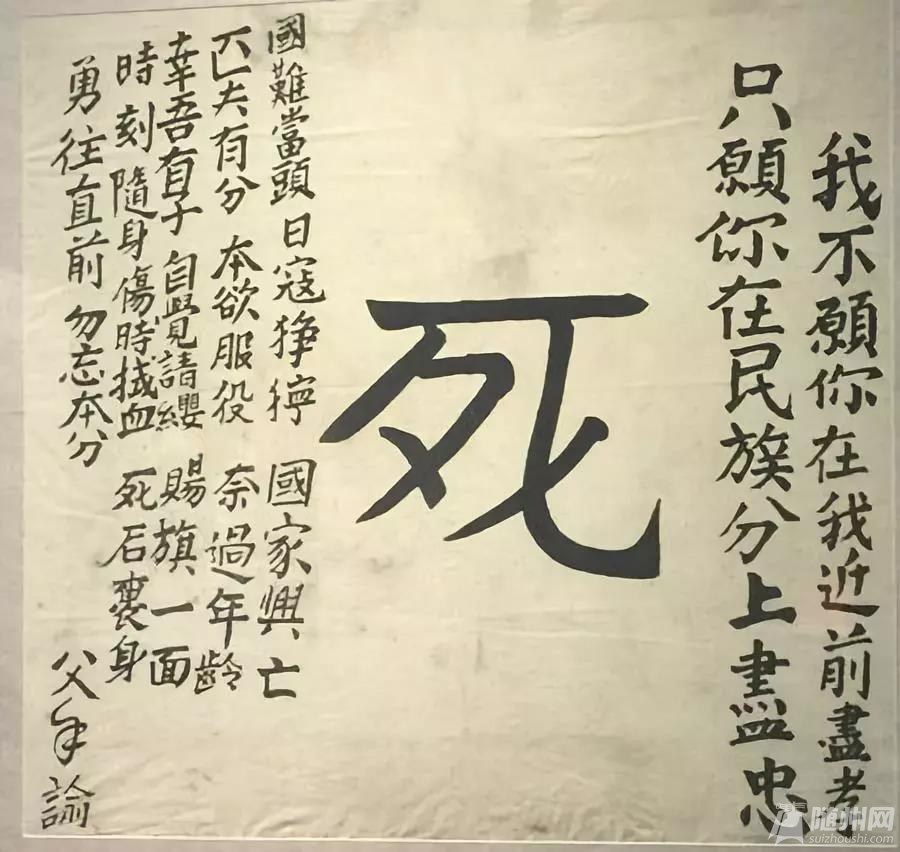 我不願你在我近前盡孝
只願你在民族分上盡忠
死
國難當頭 日寇猙獰 國家興亡
匹夫有分 本欲服役 奈過年齡
幸吾有子 自覺請纓 賜旗一面
時刻隨身 傷時拭血 死后裹身
勇往直前 勿忘本分
父手諭
随州网
suizhoushi.com